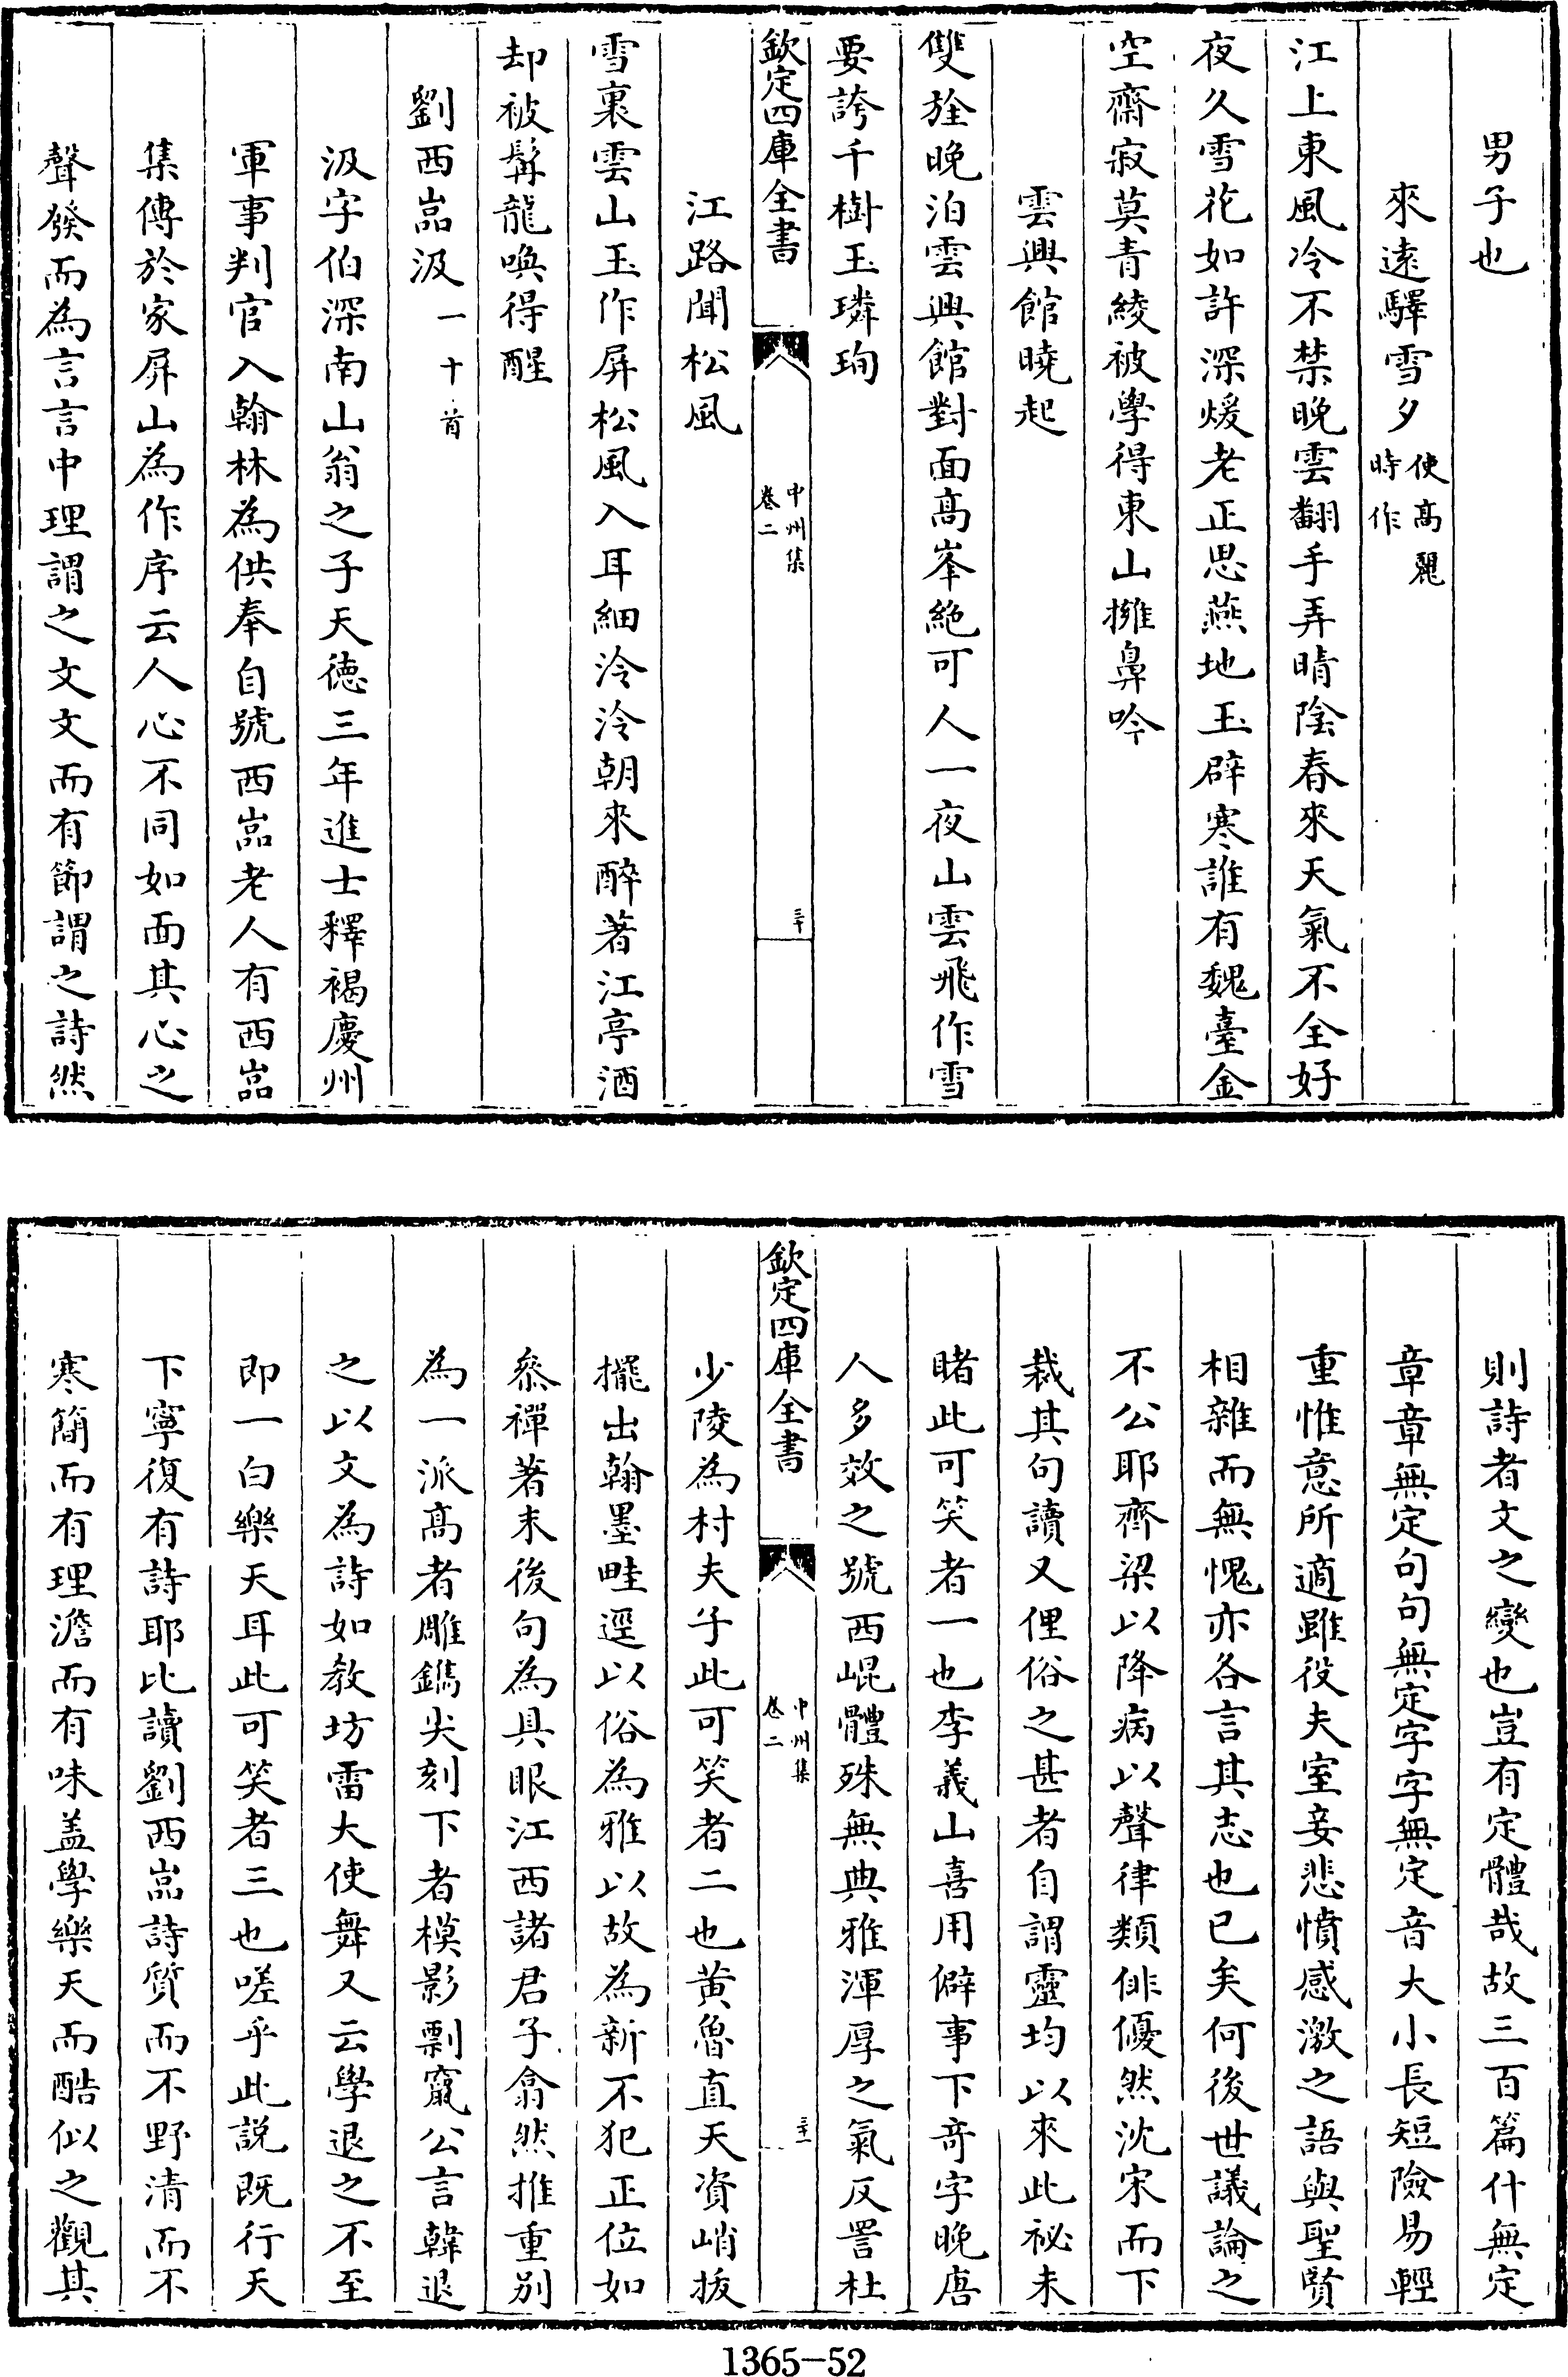 男子也
來遠驛雪夕使髙麗時作
江上東風冷不禁晚雲翻手弄晴陰春來天氣不全好
夜久雪花如許深煖老正思燕地玉辟寒誰有魏臺金
空齋寂莫青綾被學得東山擁鼻吟
雲興館曉起
雙旌晚泊雲興館對面髙峯絶可人一夜山雲飛作雪
要誇千樹玉璘珣
欽定四庫全書
中州集
卷二
三十
江路聞松風
雪裏雲山玉作屏松風入耳細泠泠朝來醉著江亭酒
却被髯龍喚得醒
劉西嵓汲一十首
汲字伯深南山翁之子天徳三年進士釋褐慶州
軍事判官入翰林為供奉自號西嵓老人有西嵓
集傳於家屏山為作序云人心不同如面其心之
聲發而為言言中理謂之文文而有節謂之詩然
則詩者文之變也豈有定體哉故三百篇什無定
章章無定句句無定字字無定音大小長短險易輕
重惟意所適雖役夫室妾悲憤感激之語與聖賢
相雜而無愧亦各言其志也已矣何後世議論之
不公耶齊梁以降病以聲律類俳優然沈宋而下
裁其句讀又俚俗之甚者自謂靈均以來此祕未
睹此可笑者一也李義山喜用僻事下奇字晚唐
人多效之號西崐體殊無典雅渾厚之氣反詈杜
欽定四庫全書
中州集
卷二
三十一
少陵為村夫子此可笑者二也黄魯直天資峭拔
擺出翰墨畦逕以俗為雅以故為新不犯正位如
叅禪著末後句為具眼江西諸君子翕然推重别
為一派髙者雕鐫尖刻下者模影剽竄公言韓退
之以文為詩如教坊雷大使舞又云學退之不至
即一白樂天耳此可笑者三也嗟乎此説既行天
下寧復有詩耶比讀劉西嵓詩質而不野清而不
寒簡而有理澹而有味盖學樂天而酷似之觀其
1365-52